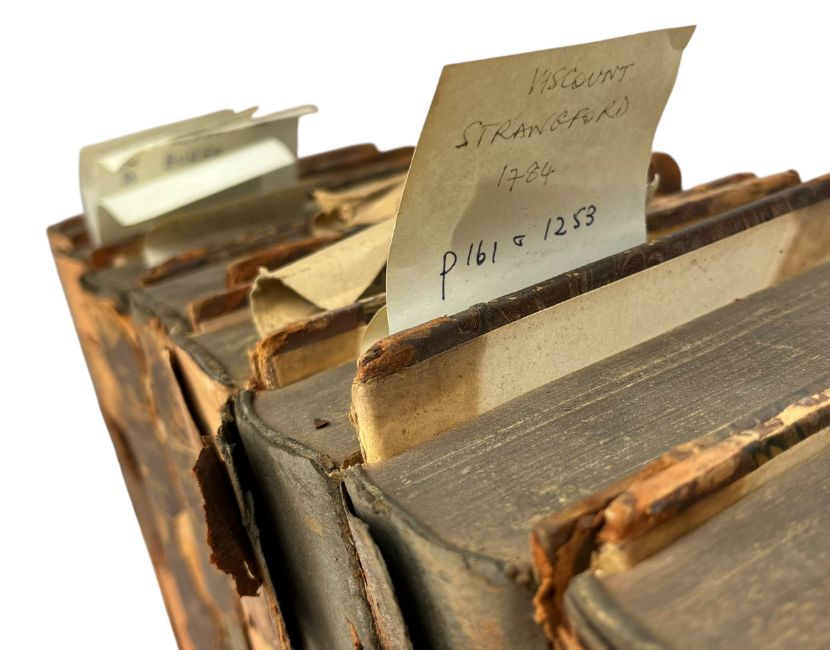 VISCOUNT
STRANGFORD
1784
p161 & 1253